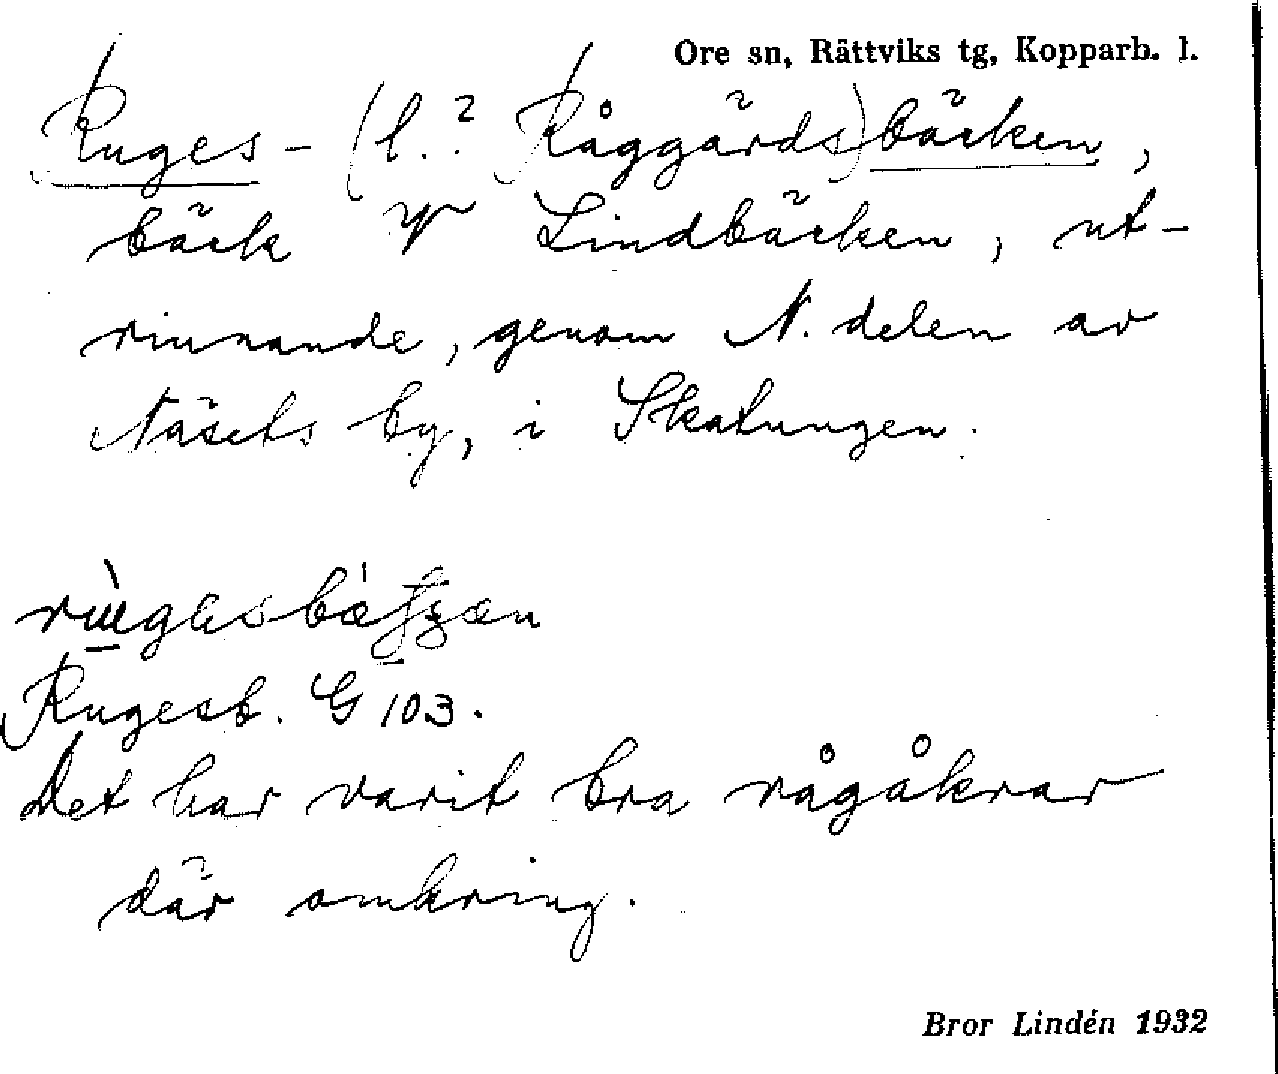 Ore sn, Rättviks tg, Kopparb. l.
Ruges- (l.? Råggårds)bäcken,
bäck Lindbäcken, ut-
rinnande, genom N. delen av
Näsets by, i Skatungen.
Rugesb. G 103.
Det har varit bra rågåkrar
där omkring.
Bror Lindén 1932